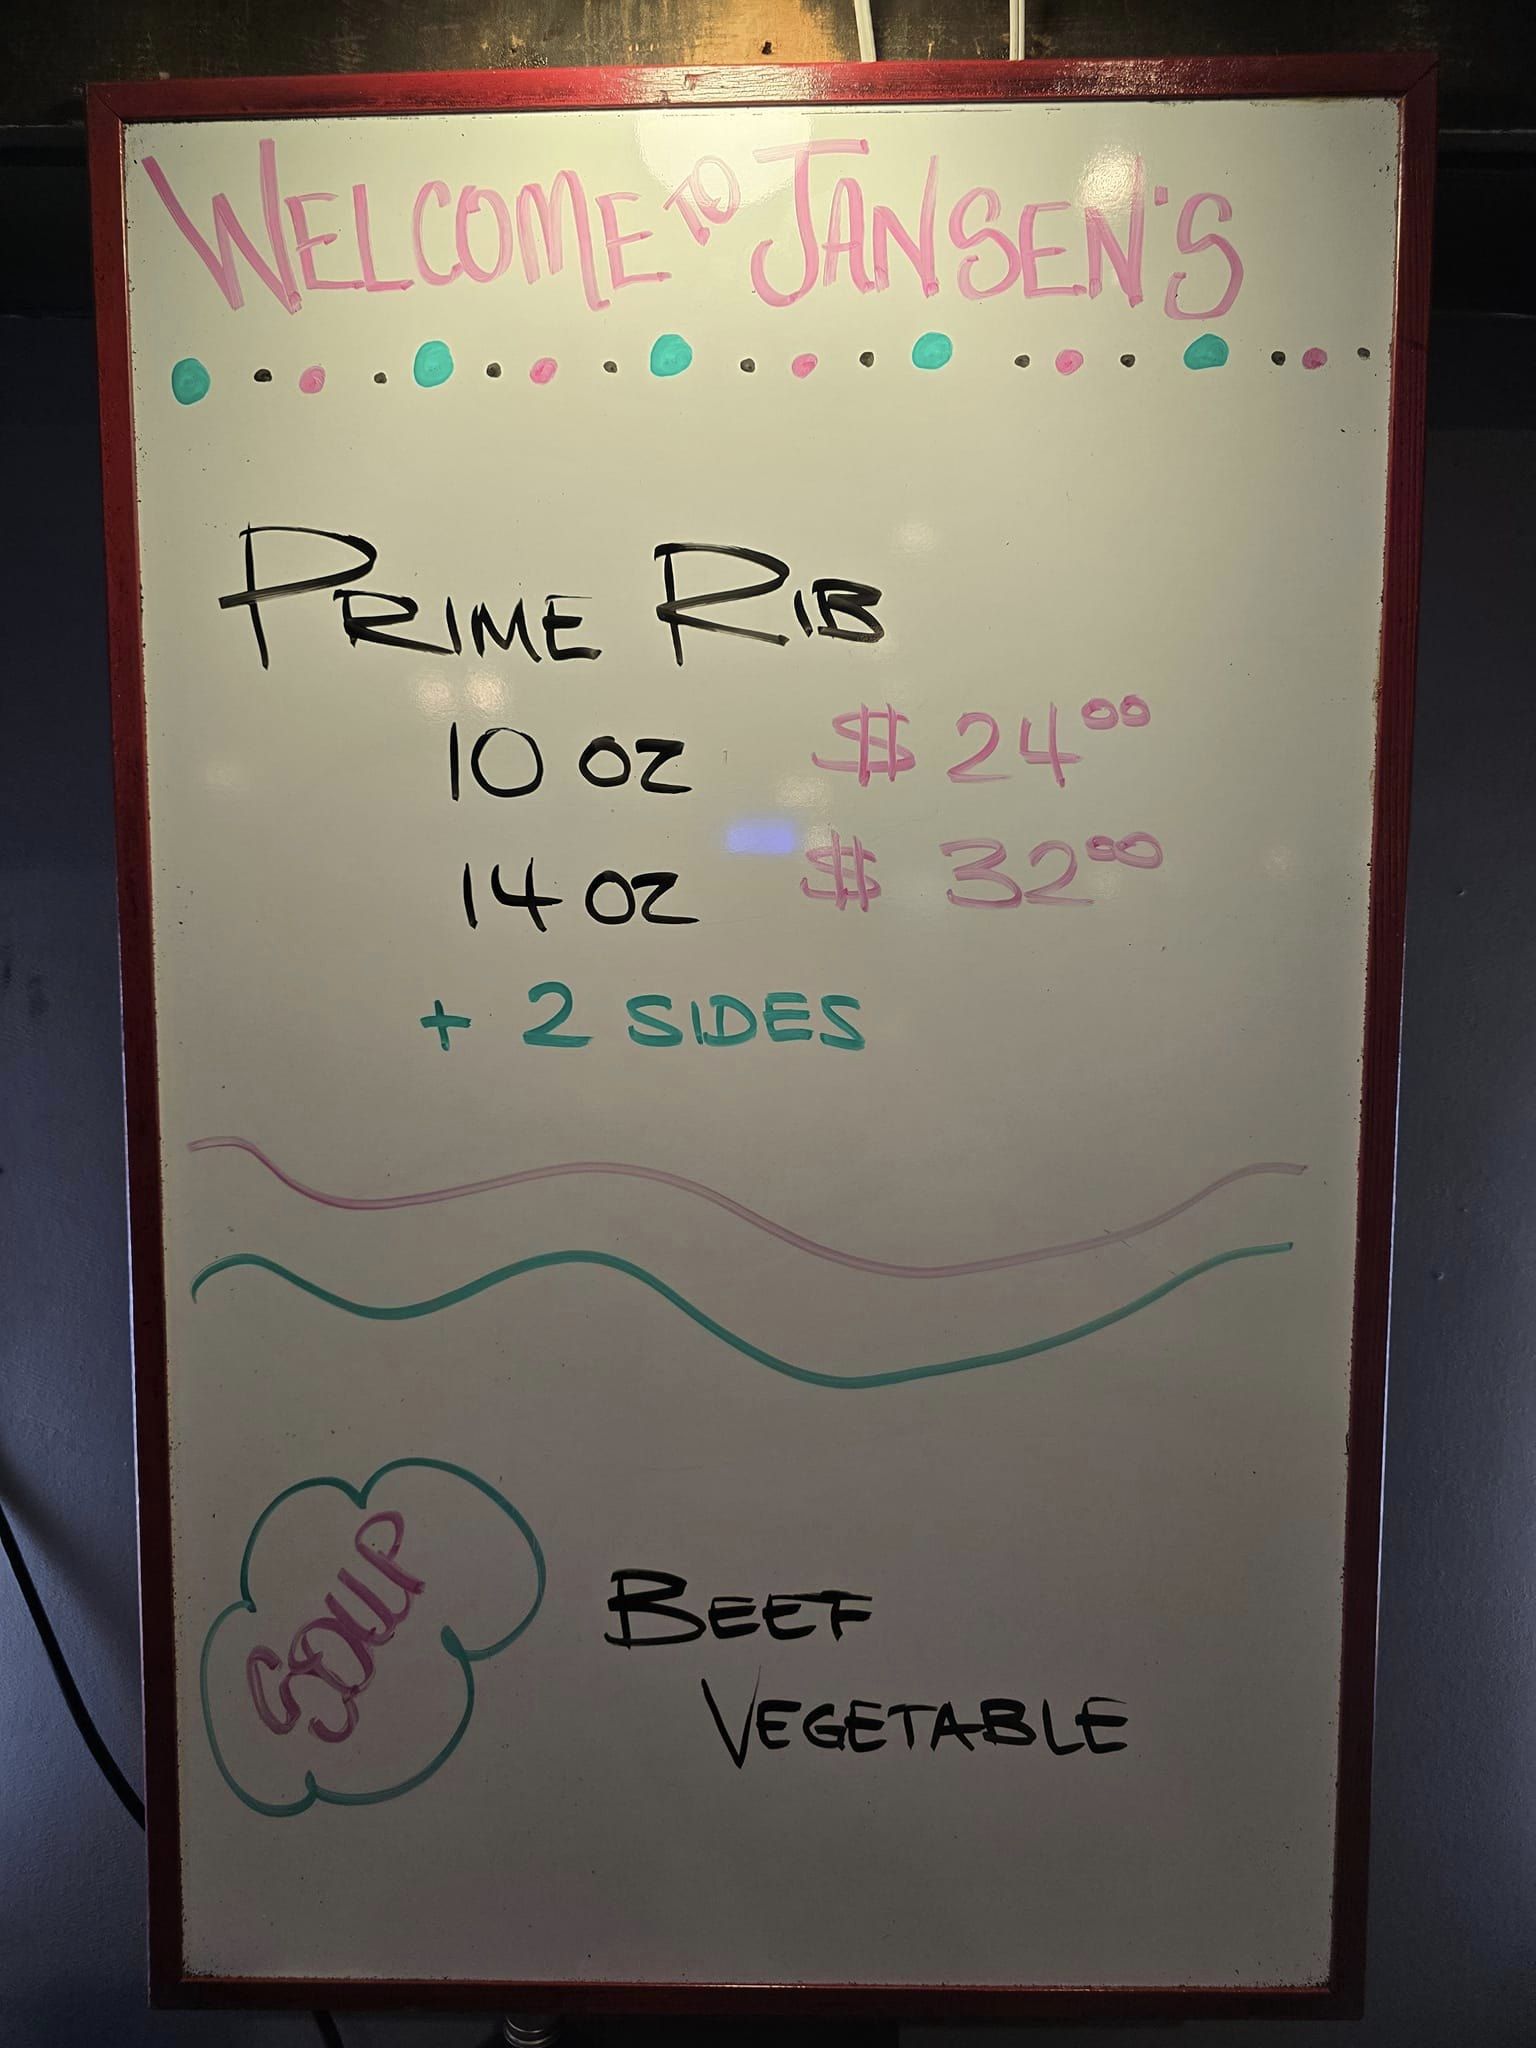 WELCOME TO JANSEN'S
PRIME RIB
10 OZ $ 24.00
14 OZ $ 32.00
+ 2 SIDES
SOUP
BEEF
VEGETABLE